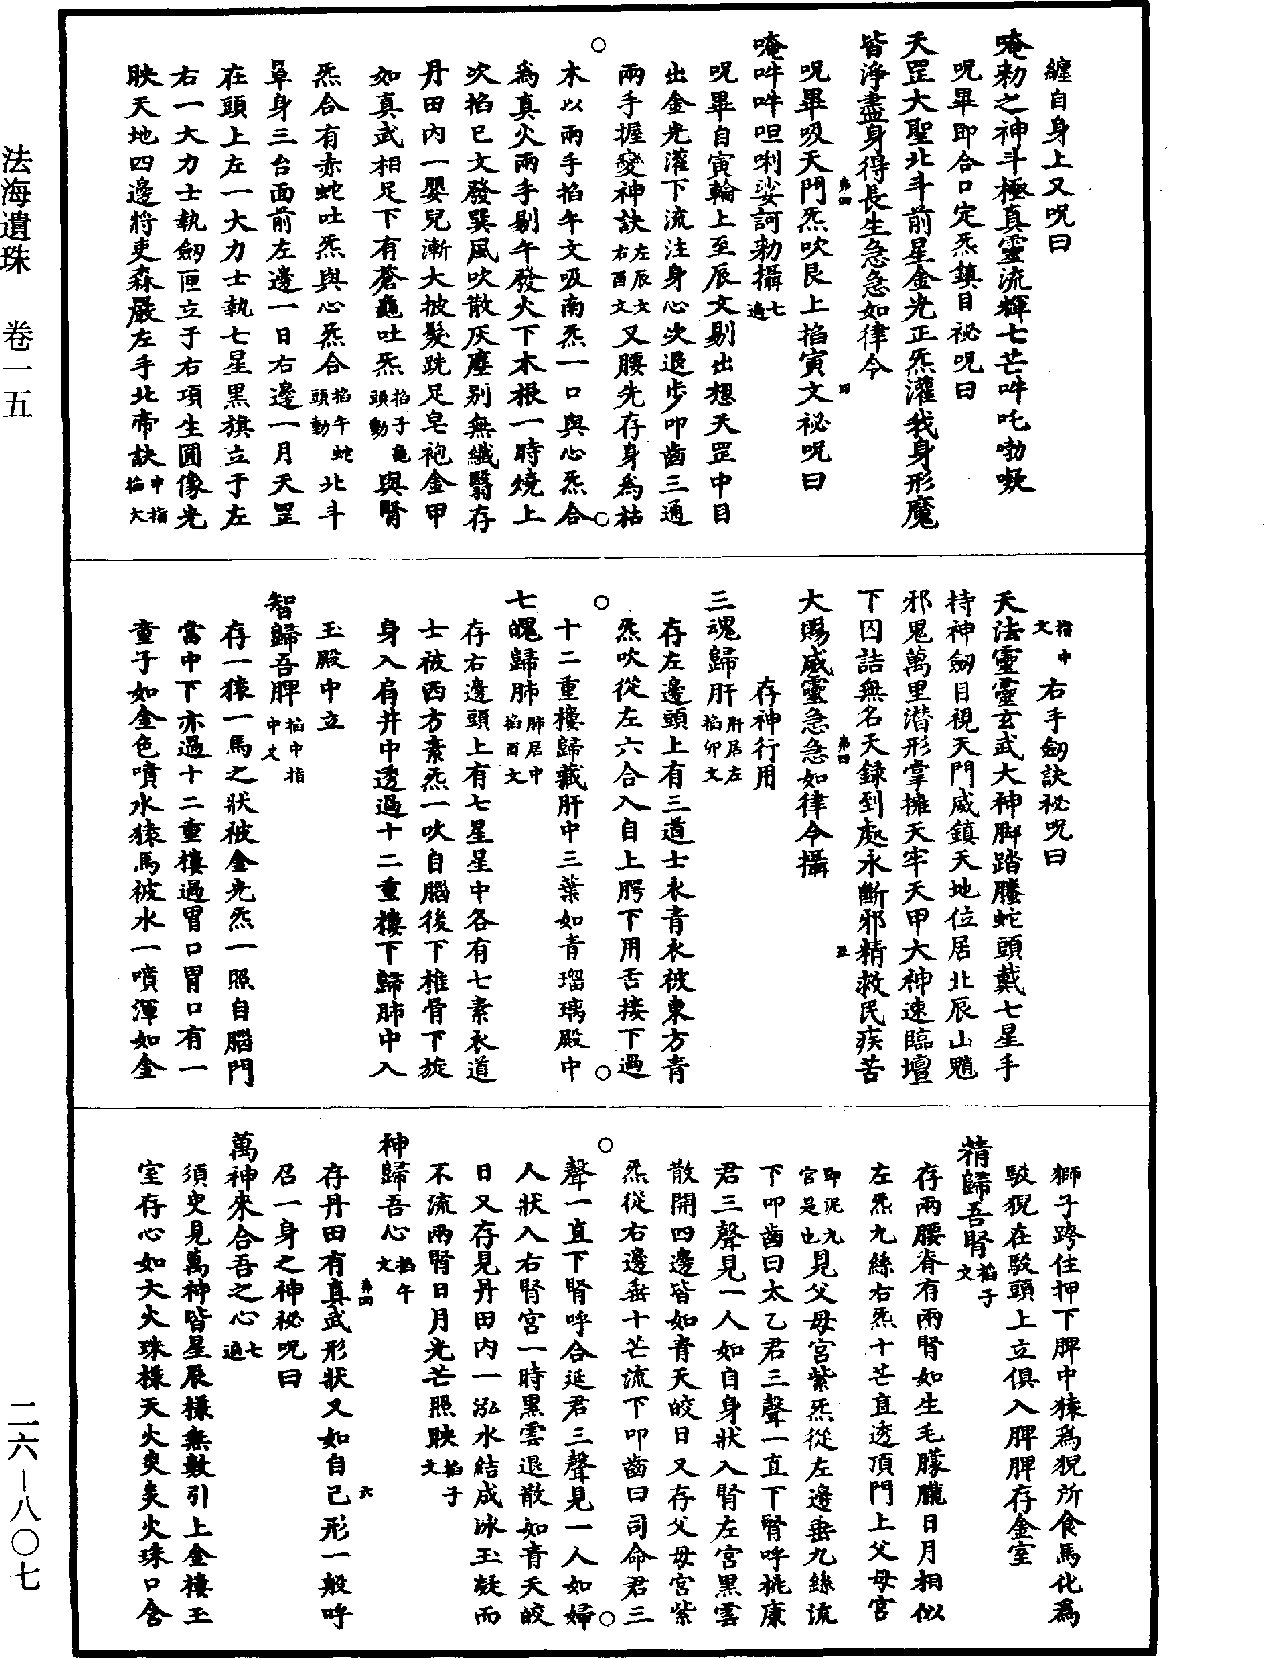 纏自身上又呪曰
唵勑之神斗極真靈流輝七芒吽吒㘄㘈
呪畢即合口定炁鎮目祕呪曰
天罡大聖北斗前星金光正炁灌我身形魔
皆淨盡身得長生急急如律令
呪畢吸天門炁吹艮上掐寅文祕呪曰
唵吽吽呾唎娑訶勑攝七遍
呪畢自寅輪上至辰文剔出想天罡中目
出金光灌下流注身心次退步叩齒三通
兩手握變神訣左辰文右酉文又腰先存身為枯
木以兩手掐午文吸南炁一口與心炁合
為真火兩手剔午發火下木根一時燒上
次掐巳文發巽風吹散灰塵别無纖翳存
丹田內一嬰兒漸大披髮跣足皂袍金甲
如真武相足下有蒼龜吐炁掐子龜頭動與腎
炁合有赤蛇吐炁與心炁合掐午蛇頭動北斗
罩身三台面前左邊一日右邊一月天罡
在頭上左一大力士執七星黑旗立于左
右一大力士執劒匣立于右項生圓像光
映天地四邊將吏森嚴左手北帝訣中指掐大
指中文右手劒訣祕呪曰
天法靈靈玄武大神脚踏螣蛇頭戴七星手
持神劒目視天門威鎮天地位居北辰山魈
邪鬼萬里潜形掌擁天牢天甲大神速臨壇
下囚詰無名天錄到處永斷邪精救民疾苦
大賜威靈急急如律令攝
存神行用
三魂歸肝肝居左掐卯文
存左邊頭上有三道士衣青衣被東方青
炁吹從左六合入自上腭下用舌接下過
十二重樓歸藏肝中三葉如青瑠璃殿中
七魄歸肺肺居中掐酉文
存右邊頭上有七星星中各有七素衣道
士被西方素炁一吹自腦後下椎骨下旋
身入肩井中透過十二重樓下歸肺中入
玉殿中立
智歸吾脾掐中指中文
存一猿一馬之狀被金光炁一照自腦門
當中下亦過十二重樓過胃口胃口有一
童子如金色噴水猿馬被水一噴渾如金
獅子跨住押下脾中猿為猊所食馬化為
駁猊在駁頭上立俱入脾脾存金室
精歸吾腎掐子文
存兩腰脊有兩腎如生毛朦朧日月相似
左炁九絲右炁十芒直透頂門上父母宮
即泥九宮是也見父母宮紫炁從左邊垂九絲流
下叩齒曰太乙君三聲一直下腎呼桃康
君三聲見一人如自身狀入腎左宮黑雲
散開四邊皆如青天皎日又存父母宮紫
炁從右邊垂十芒流下叩齒曰司命君三
聲一直下腎呼合延君三聲見一人如婦
人狀入右腎宮一時黑雲退散如青天皎
日又存見丹田內一泓水結成冰玉凝而
不流兩腎日月光芒照映掐子文
神歸吾心掐午文
存丹田有真武形狀又如自己形一般呼
召一身之神祕呪曰
萬神來合吾之心七遍
須臾見萬神皆星辰樣無數引上金樓玉
室存心如大火珠樣天火炎炎火珠口含
法海遺珠 卷一五
二六—八〇七